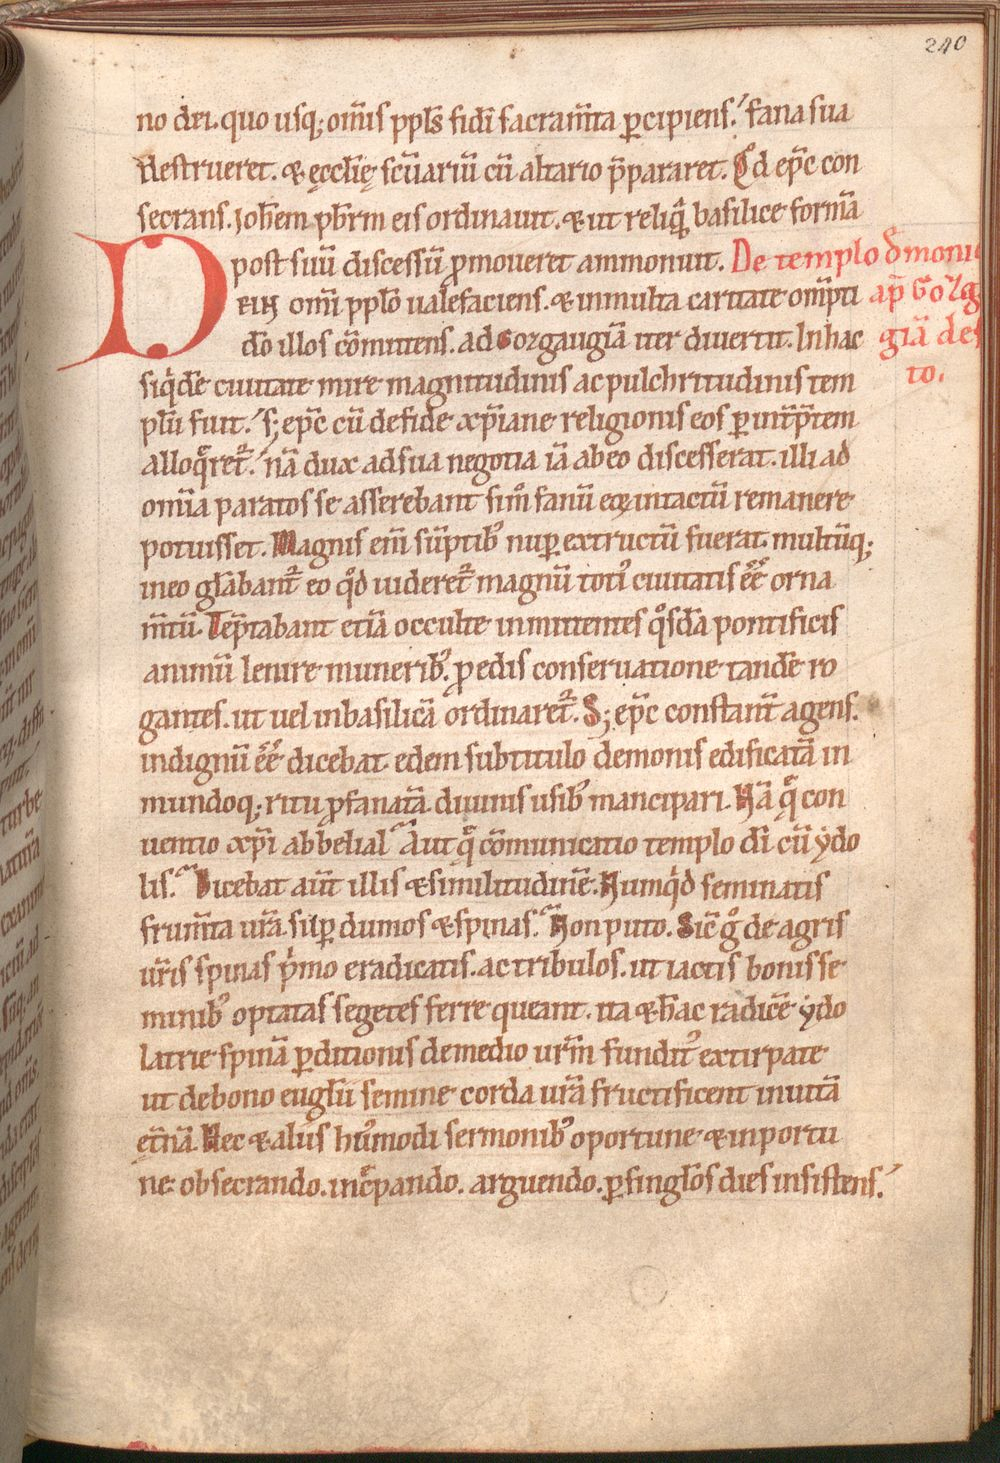 240
no dei. quo usq; om̄is ppl̄s fidī sacram̄ta p̱cipiens. fana sua
destrueret. & ęccl̄ię sc̄uariū cū altario p̄pararet. Qd ep̄c con
secrans. Joh̄em pb̄rm eis ordinauit. & ut reliq̄ basilice formā
post suū discessū ꝓmoueret ammonuit. De templo d̄moni
EIN omī pplō ualefaciens. & in multa caritate om̄pti ap̄ Go
D dō illos cōmittens. ad Gorgaugiā iter diuertit. In hac giā des
siqͥdē ciuitate mire magnitudinis ac pulchritudinis tem to.
plū fuit. s; ep̄c cū de fide xp̄iane religionis eos p̱ int̄p̄tem
alloq̄ret᷑. nā dux ad sua negotia iā ab eo discesserat. illi ad
om̄ia paratos se asserebant si m̊ fanū eoꝝ intactū remanere
potuisset. Magnis em̄ sūptib᷒ nup̱ extructū fuerat. multūq;
in eo gl̄abant᷑ eo qd̊ uideret᷑ magnū toti᷒ ciuitatis ēē orna
m̄tū. Tēptabant etiā occulte inmittentes qͦsdā pontificis
animū lenire munerib᷒. ꝓ edis conseruatione tandē ro
gantes. ut uel in basilicā ordinaret᷑. S; ep̄c constant̄ agens.
indignū ēē dicebat edem sub titulo demonis edificatā in
mundoq; ritu ꝓfanatā. diuinis usib᷒ mancipari. Nā q̄ con
uentio xp̄i ab belial Aut q̄ cōmunicatio templo dī cū ẏdo
lis. Dicebat aūt illis & similitudinē. Numqͥd seminatis
frum̄ta ur̄a. sup̱ dumos & spinas. Non puto. Sic̄ gͦ de agris
ur̄is spinas pͥmo eradicatis. ac tribulos. ut iactis bonis se
minib᷒ optatas segetes ferre queant. ita & h̄ac radicē ẏdo
latrie spinā p̱ditionis de medio ur̄m fundit᷒ extirpate
ut de bono eugl̄ii semine corda ur̄a fructificent in uitā
et̄nā. Hec & aliis hui᷒modi sermonib᷒ oportune & inportu
ne. obsecrando. inc̄pando. arguendo. p̱ singl̄os dies insistens.